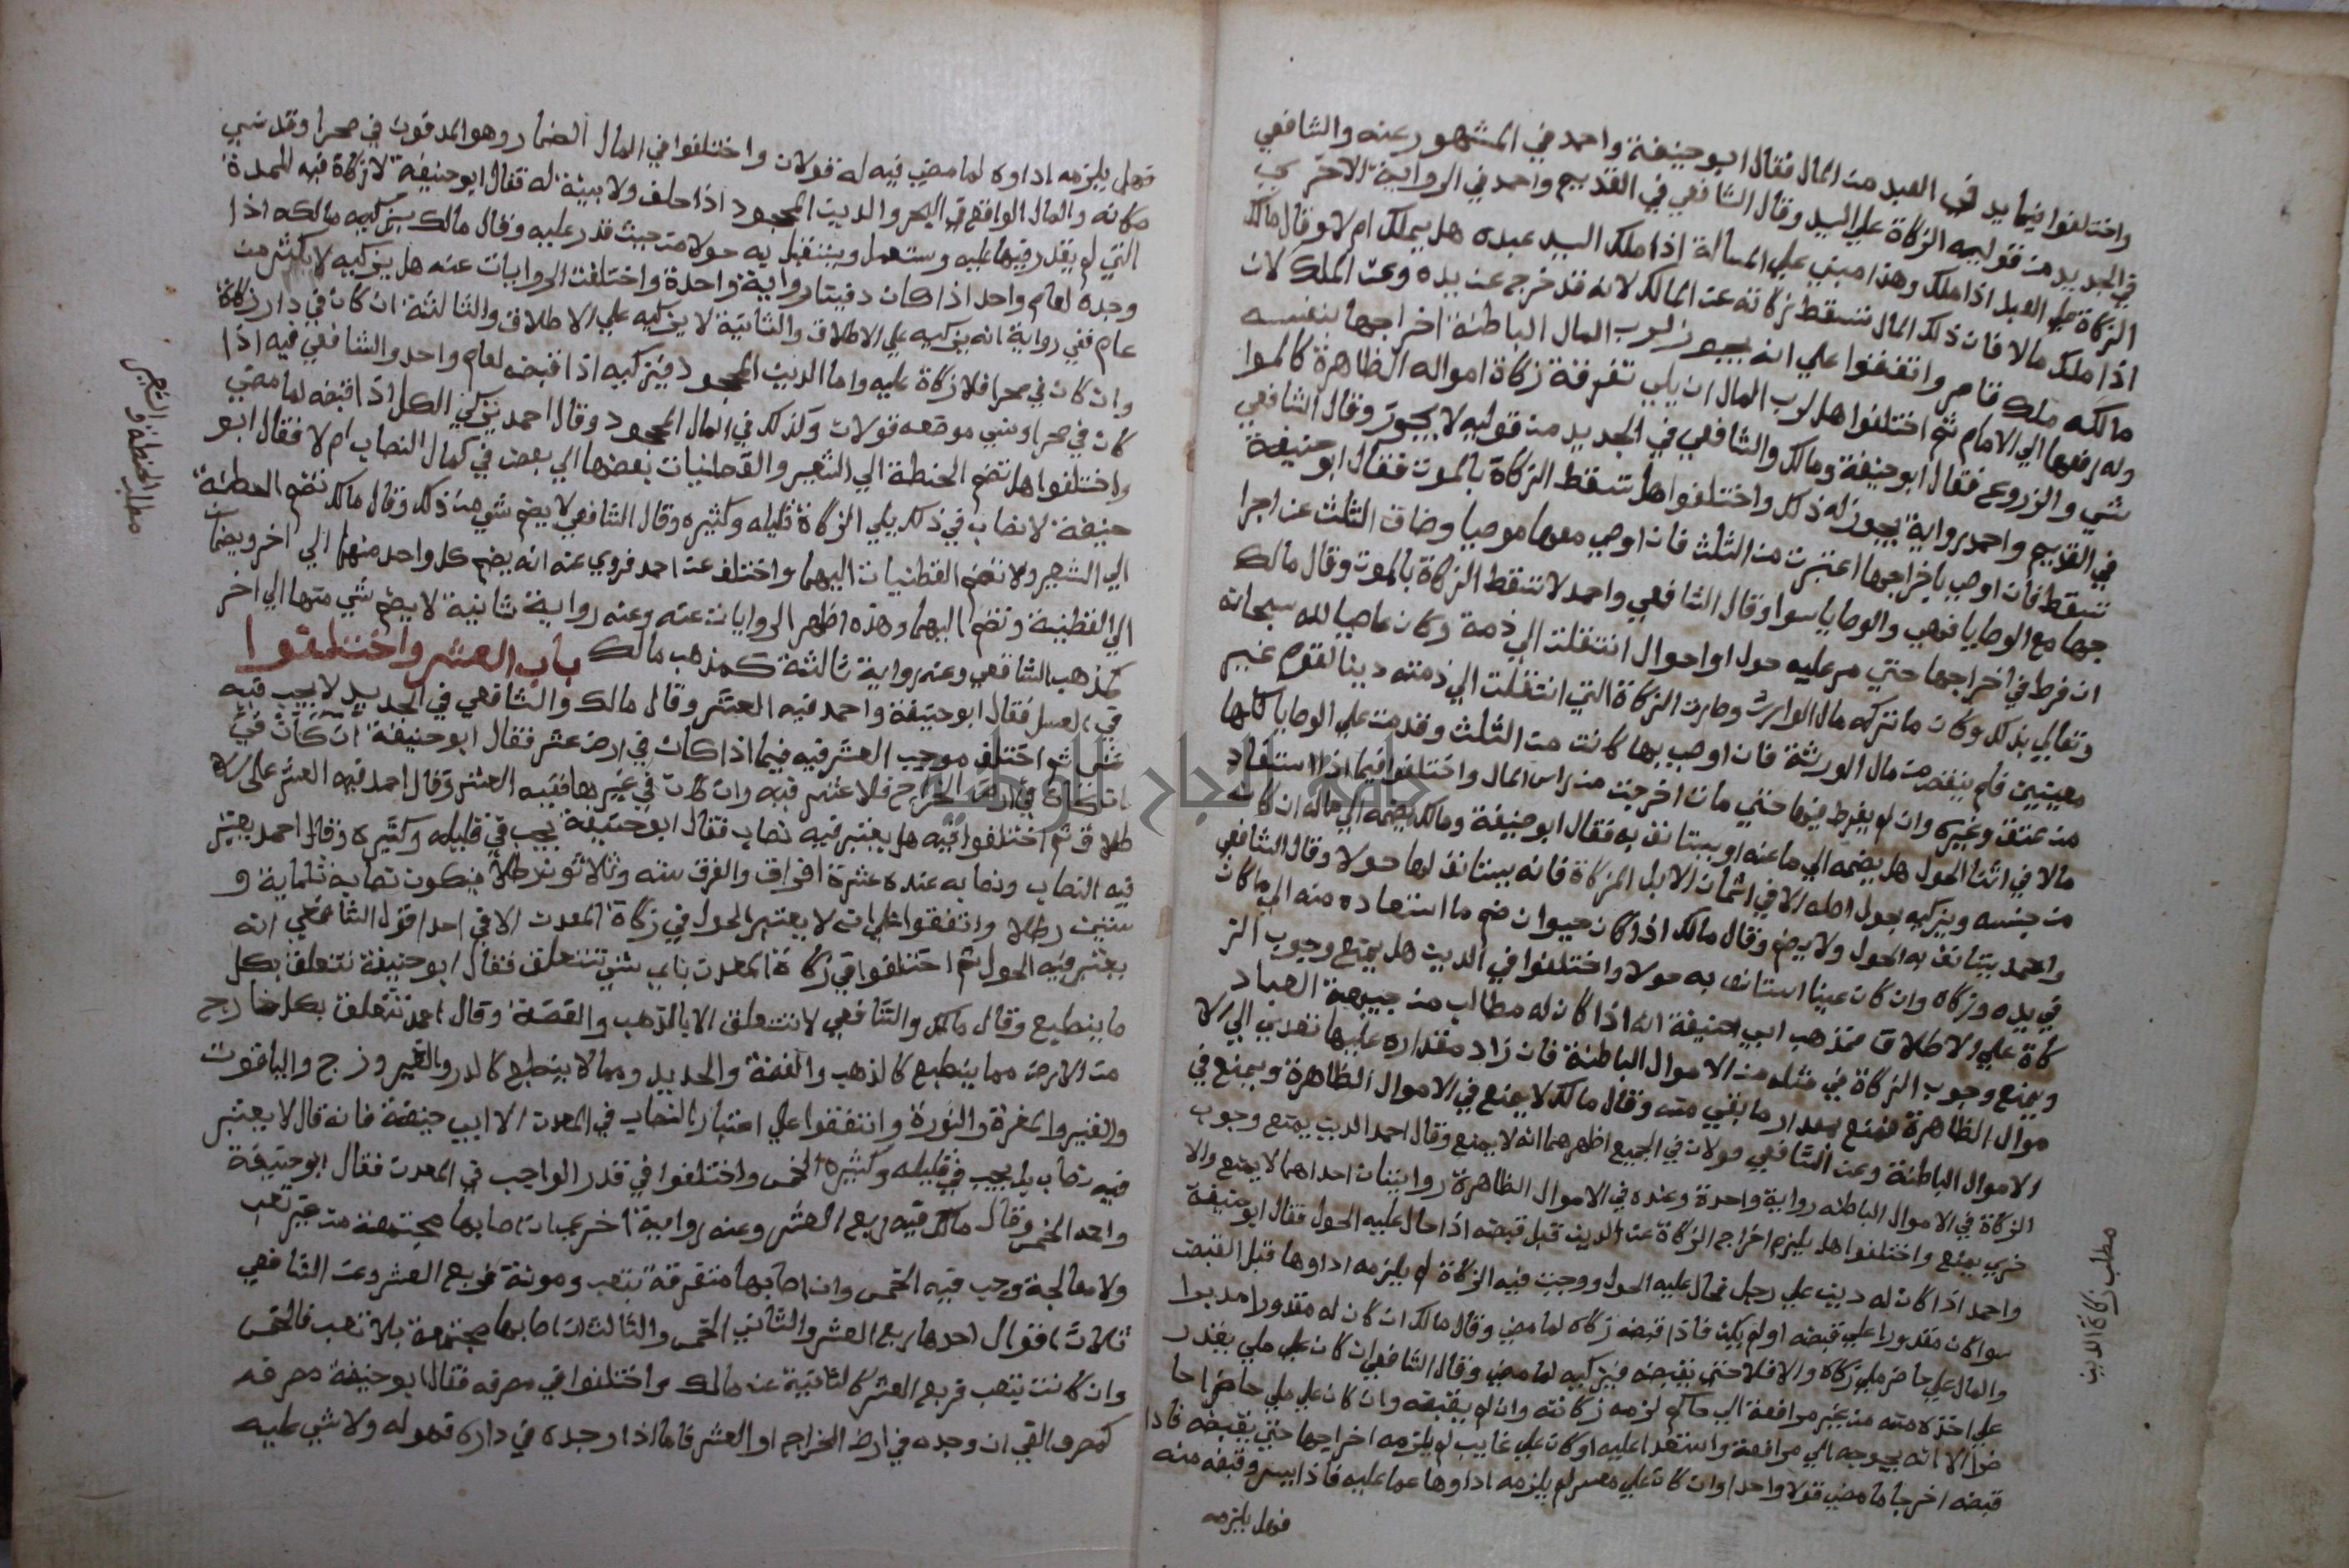 واختلفوا فيما يد في العبد من المال فقال ابو حنيفة واحمد في المشهور عنه والشافعي
في الجديد من قوليه الزكاة علي السيد وقال الشافعي في القديم واحمد في الرواية الاخري يجب
الزكاة علي العبد اذا ملك وهذا مبني علي المسالة اذا ملك السيد عبده هل يملك ام لا وقال مالك
اذا ملك مالا فان ذلك المال تسقط زكاته عن المالك لانه قد خرج عن يده وعن الملك لان
مالكه ملك قاصر واتفقوا علي انه يجوز لرب المال الباطنة اخراجها بنفسه
وله رفعها الي الامام ثم اختلفوا هل لرب المال ان يلي تفرقة زكاة امواله الظاهرة كالموا
شي والزروع فقال ابو حنيفة ومالك والشافعي في الجديد من قوليه لا يجوز وقال الشافعي
في القديم واحمد رواية يجوز له ذلك واختلفوا هل تسقط الزكاة بالموت فقال ابو حنيفة
تسقط فان اوصي باخراجها اعتبرت من الثلث فان اوصي معها موصيا وضاق الثلث عن اجرا
جها مع الوصايا فهي والوصايا سوا وقال الشافعي واحمد لا تسقط الزكاة بالموت وقال مالك
ان فرط في اخراجها حتي مر عليه حول او احوال انتقلت الي ذمة وكان عاصيا لله سبحانه
وتعالي بذلك وكان ما تركه مال الوارث وصارت الزكاة التي انتقلت الي ذمته دينا لقوم غير
معينين فلم ينقض من مال الورثة فان اوصي بها كانت من الثلث وقدمت علي الوصايا كلها
من عتق وغيره وان لم يفرط فيها حتي مات اخرجت من راس المال واختلفوا فيما اذا استفاد
مالا في اثنا الحول هل يضمه الي ما عنه او يستانف به فقال ابو حنيفة ومالك يضمه الي ماله ان كان
من جنسه ويزكيه بحول اصله الا في اثمان الابل المزكاة فانه يستانف لها حولا وقال الشافعي
واحمد يستانف به الحول ولا يضم وقال مالك اذا كان حيوان ضم ما استفاده منه الي ما كان
في يده وزكاه وان كان عينا استانف به حولا واختلفوا في الدين هل يمنع وجوب الز
كاة علي الاطلاق فمذهب ابي حنيفة انه اذا كان له مطالب من جهة العباد
ويمنع وجوب الزكاة في مثله من الاموال الباطنة فان زاد مقداره عليها تعدي الي الا
موال الظاهرة فمنع بمقدار ما بقي منه وقال مالك لا يمنع في الاموال الظاهرة ويمنع في
الاموال الباطنة وعن الشافعي قولان في الجميع اظهرهما انه لا يمنع وقال احمد الدين يمنع وجوب
الزكاة في الاموال الباطنه رواية واحدة وعنده في الاموال الظاهرة روايتان احداهما لا يمنع والا
خري يمنع واختلفوا هل يلزم اخراج الزكاة عن الدين قبل قبضه اذا حال عليه الحول فقال ابو حنيفة
واحمد اذا كان له دين علي رجل فحال عليه الحول ووجبت فيه الزكاة لم يلزمه اداوها قبل القبض
سوا كان مقدورا علي قبضه او لم يكن فاذا قبضه زكاه لما مضي وقال مالك ان كان له مقدورا مدبرا
والمال علي حاضر ملي زكاه والا فلا حتي يقبضه فيزكيه لما مضي وقال الشافعي ان كان علي ملي يقدر
علي اخذه منه من غير مرافعة الي حاكم لزمه زكاته وان لم يقبضه وان كان علي ملي حاضرا حا
ضرا الا انه يحوجه الي مرافعة واستعدا عليه او كان علي غايب لم يلزمه اخراجها حتي يقبضه فاذا
قبضه اخرجها ما مضي قولا واحدا وان كان علي معسر لم يلزمه اداوها عما عليه فاذا ايسر وقبضه منه
فهل يلزمه
مطلب زكاة الدين
فهل يلزمه اداوه لما مضي فيه له قولان واختلفوا في المال الضمار وهو المدفون في صحرا وقد نسي
مكانه والمال الواقع في البحر والدين المجحود اذا حلف ولا بينة له فقال ابو حنيفة لا زكاة فيه للمدة
التي لم يقدر فيها عليه وستعمل ويستقبل به حولا من حيث قدر عليه وقال مالك يزكيه مالكه اذا
وجده لعام واحد اذا كان دفينا رواية واحدة واختلفت الروايات عنه هل يزكيه لاكثر من
عام ففي رواية انه يزكيه علي الاطلاق والثانية لا يزكيه علي الاطلاق والثالثة ان كان في دار زكاة
وان كان في صحرا فلا زكاة عليه واما الدين المجحود فيزكيه اذا قبضه لعام واحد والشافعي فيه اذا
كان في صحرا ونسي موضعه قولان وكذلك في المال المجحود وقال احمد يزكي الكل اذا قبضه لما مضي
واختلفوا هل تضم الحنطة الي الشعير والقطنيات بعضها الي بعض في كمال النصاب ام لا فقال ابو
حنيفة لا نصاب في ذلك يلي الزكاة قليله وكثيره وقال الشافعي لا يضم شي من ذلك وقال مالك تضم الحطنة
الي الشعير ولا تضم القطنيات اليهما واختلف عن احمد فروي عنه انه يضم كل واحد منهما الي اخر ويضمان
الي القطنية وتضم اليهما وهذه اظهر الروايات عنه وعنه رواية ثانية لا يضم شي منها الي اخر
كمذهب الشافعي وعنه رواية ثالثة كمذهب مالك باب العشر واختلفوا
في العسل فقال ابو حنيفة واحمد فيه العشر وقال مالك والشافعي في الجديد لا يجب فيه
عشر ثم اختلف موجب العشر فيه فيما اذا كان في ارض عشر فقال ابو حنيفة ان كان في
ان كان في ارض الخراج فلا عشر فيه وان كان في غيرها ففيه العشر وقال احمد فيه العشر علي الا
طلاق ثم اختلفوا فيه هل يعتبر فيه نصاب فقال ابو حنيفة يجب في قليله وكثيره وقال احمد يعتبر
فيه النصاب ونصابه عنده عشرة افراق والفرق سته وثلاثون رطلا فيكون نصابه ثلثماية و
ستين رطلا واتفقوا علي انه لا يعتبر الحول في زكاة المعدن الا في احد قول الشافعي انه
يعتبر فيه الحول ثم اختلفوا في زكاة المعدن باي شي تتعلق فقال ابو حنيفة تتعلق بكل
ما ينطبع وقال مالك والشافعي لا تتعلق الا بالذهب والفضة وقال احمد تتعلق بكل خارج
من الارض مما ينطبع كالذهب والفضة والحديد ومما لا ينطبع كالدر والفيروزج والياقوت
والقير والمغرة والنورة واتفقوا علي اعتبار النصاب في المعدن الا ابي حنيفة فانه قال لا يعتبر
فيه نصاب بل يجب في قليله وكثيره الخمس واختلفوا في قدر الواجب في المعدن فقال ابو حنيفة
واحد الخمس وقال مالك فيه ربع العشر وعنه رواية اخري ان اصابها مجتمعة من غير تعب
ولا معالجة وجب فيه الخمس وان اصابها متفرقة بتعب ومونة فربع العشر وعن الشافعي
ثلاث اقوال احدها ربع العشر والثاني الخمس والثالث ان اصابها مجتمعة بلا تعب فالخمس
وان كانت بتعب فربع العشر كالثانية عن مالك واختلفوا في مصرفه فقال ابو حنيفة مصرفه
كمصرف الفي ان وجده في ارض الخراج او العشر فاما اذا وجده في داره فهو له ولا شي عليه
مطلب الحنطة والشعير
جامعة النجاح الوطنية